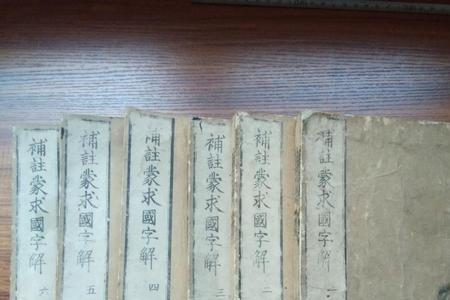 補註蒙求國字解 一
補註蒙求國字解 二
補註蒙求國字解 三
補註蒙求國字解 四
補註蒙求國字解 五
補註蒙求國字解 六